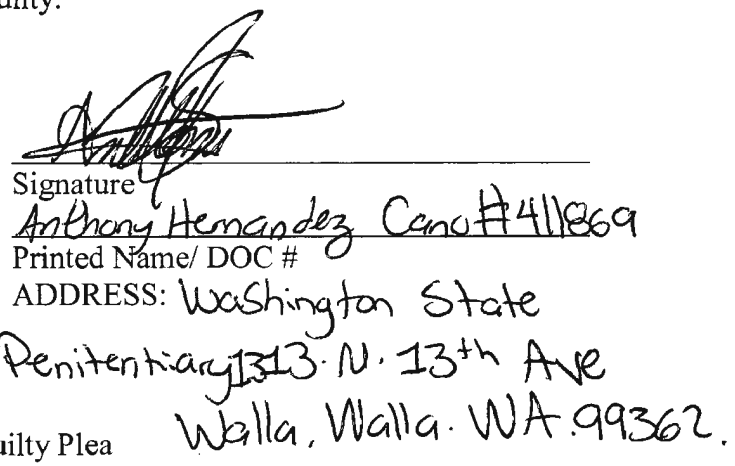 unty.
Signature
Anthony Hernandez Cano #411869
Printed Name/ DOC #
ADDRESS: Washington State
Penitentiary 1313. N. 13th Ave
uilty Plea Walla, Walla. WA. 99362.